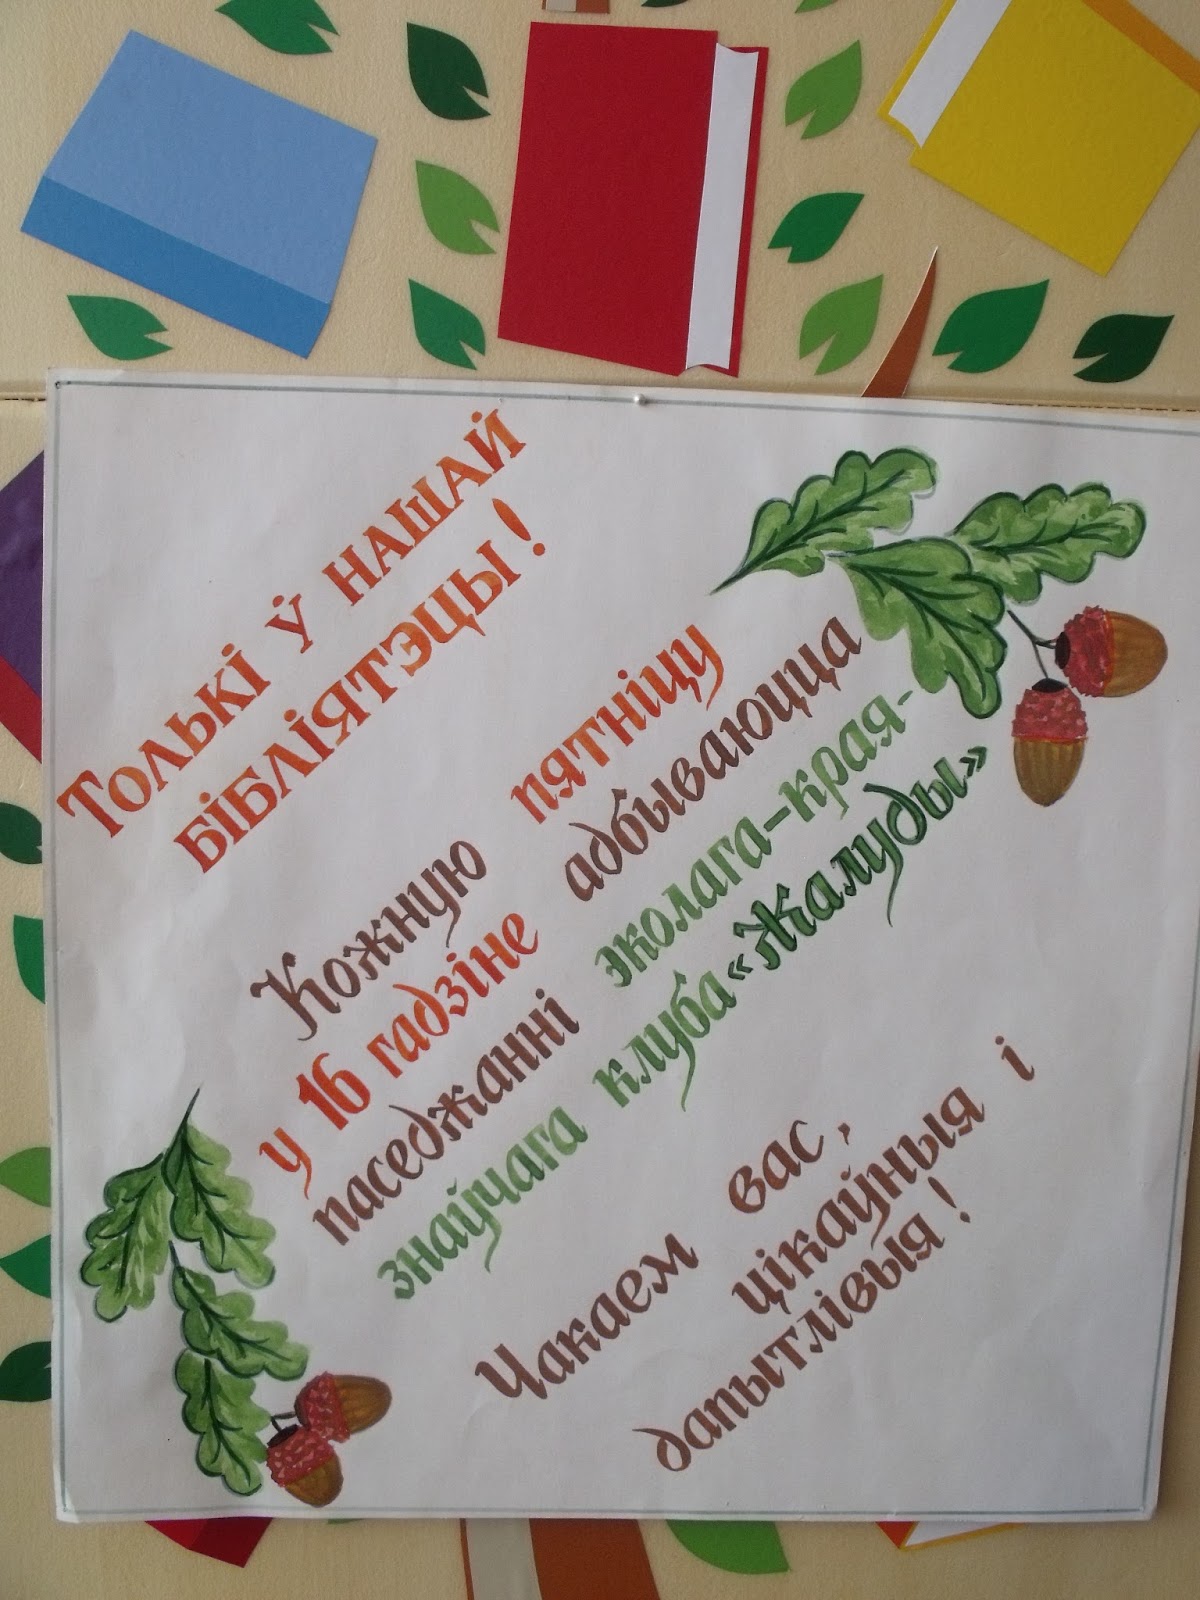 Толькі ў нашай
бібліятэцы!
Кожную пятніцу
у 16 гадзіне адбываюцца
паседжанні эколага-края-
знаўчага клуба «Жалуды»
Чакаем вас,
цікаўныя і
дапытлівыя!